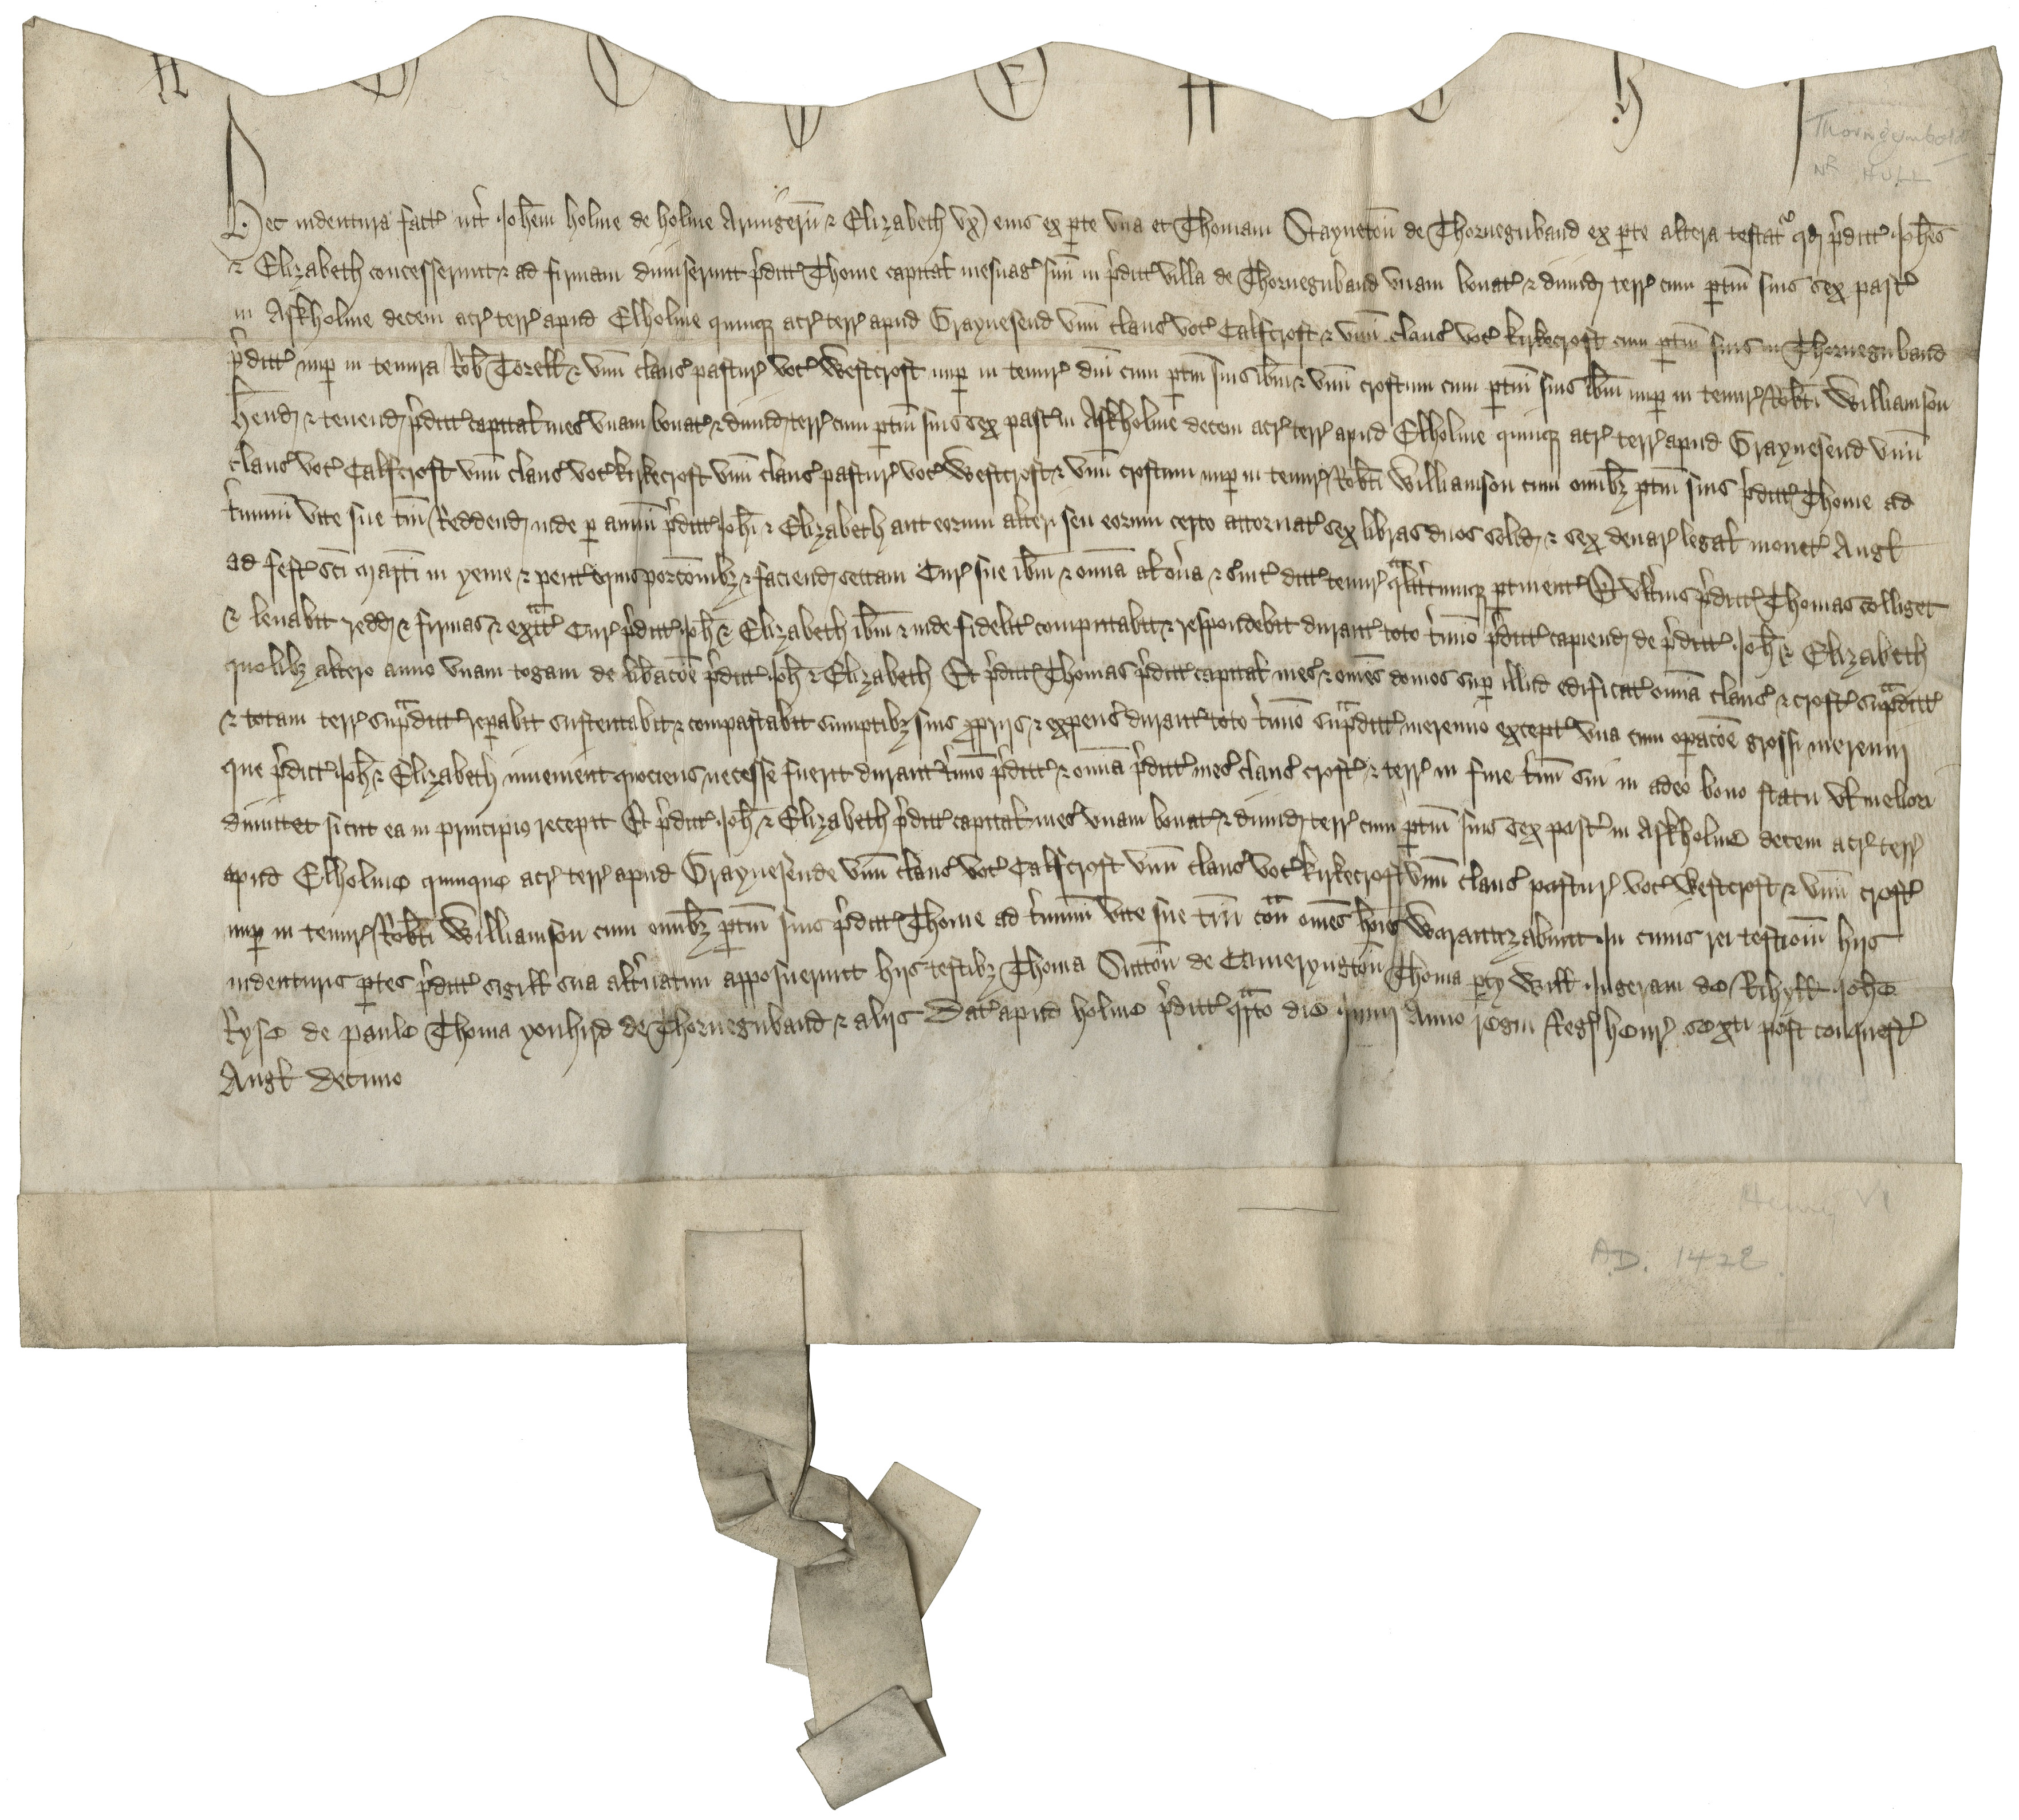 Thorngumbald
Nr HULL
Hec indentura fact' int' Joh̄em Holme de Holme Armigerū & Elizabeth vx' eius ex p̱te vna et Thomam Stayneton̄ de Thorneguband ex p̱te altera testat' qd' p'dict' Joh̄es
& Elizabeth concesserunt & ad firmam dimiserunt p'dict' Thome capital' mesuag' suū in p'dict' villa de Thorneguband vnam bouat' & dimid' terr' cum p̱tin̄ suis sex past'
in Askholme decem acr' terr' apud Elholme quinq₃ acr' terr' apud Graynesend vnū claus' voc' Calfcroft & vnū claus' voc' kirkecroft cum p̱tin̄ suis in Thorneguband
p'dict' nup̱ in tenura Rob' Torell & vnū claus' pastur' voc' Westcroft nup̱ in tenur' dn̄i cum p̱tin̄ suis ib̄m & vnū croftum cum p̱tin̄ suis ib̄m nup̱ in tenur' Rob̄ti Williamson
h̄end' & tenend' p'dict' capital' mes' vnam bouat' & dimid' terr' cum p̱tin̄ suis sex past' in Askholme decem acr' terr' apud Elholme quinq₃ acr' terr' apud Graynesend vnū
claus' voc' Calfcroft vnū claus' voc' kirkecroft vnū claus' pastur' voc' Westcroft & vnū croftum nup̱ in tenur' Rob̄ti Williamson cum om̄ib₃ p̱tin̄ suis p'dict' Thome ad
t'minū vite sue tm̄ Reddend' inde p̱ annū p'dict' Joh̄i & Elizabeth aut eorum alteri seu eorum certo attornat' sex libras duos solid' & sex denar' legal' monet' Angl'
ad fest' sc̄i Martī in yeme & pent' equis porc̄oib₃ & faciend' sectam Cur' sue ib̄m & om̄ia al' on̄a & s'uic' dict' tenur' qualit'cunq₃ p̱tinent' Et vlt'ius p'dict' Thomas colliget
& leuabit redd' & firmas & ext'ct' Cur' p'dict' Joh̄ & Elizabeth ib̄m & inde fidelit' computabit & respondebit durant' toto t'mio p'dict' capiend' de p'dict' Joh̄ & Elizabeth
quolib₃ altero anno vnam togam de lib'ac̄oe p'dict' Joh̄ & Elizabeth Et p'dict' Thomas p'dict' capital' mes' & om̄es domos sup̱ illud edificat' om̄ia claus' & croft' sup'dict'
& totam terr' sup'dict' rep̱abit sustentabit & compastabit sumptib₃ suis p̱prijs & expens' durant' toto t'mio sup'dict' meremio except' vna cum op̱ac̄oe grossi meremij
que p'dict' Joh̄ & Elizabeth inuenient quociens necesse fuerit durant' t'mio p'dict' & om̄ia p'dict' mes' claus' croft' & terr' in fine t'mi sui in adeo bono statu vl' meliori
dimittet sicut ea in principio recepit Et p'dict' Joh̄ & Elizabeth p'dict' capital' mes' vnam bouat' & dimid' terr' cum p̱tin̄ suis sex past' in Askholme decem acr' terr'
apud Elholme quinque acr' terr' apud Graynesende vnū claus' voc' Calfcroft vnū claus' voc' kirkecroft vnū claus' pastur' voc' Westcroft & vnū croft'
nup̱ in tenur' Rob̄ti Williamson cum om̄ib₃ p̱tin̄ suis p'dict' Thome ad t'minū vite sue tm̄ cont̄ om̄es ho̅ies Warantizabunt In cuius rei testioniū hijs
indenturis p̱tes p'dict' sigill' sua alt'natim apposuerunt hijs testib₃ Thoma Sutton̄ de Cameryngton̄ Thoma p̱cy Will' Ingeram de Rihyll Joh̄e
Ryse de paule Thoma yonhird de Thorneguband & alijs Dat' apud holme p'dict' q'rto die Junij Anno regni Reg' henr' sexti post conquest'
Angl' decimo
Henry VI
A.D. 1422